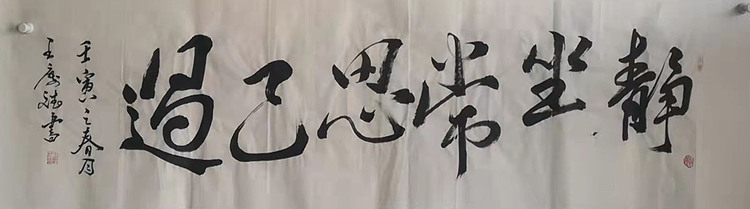 静坐常思己过
壬寅之春月
王庆斌書